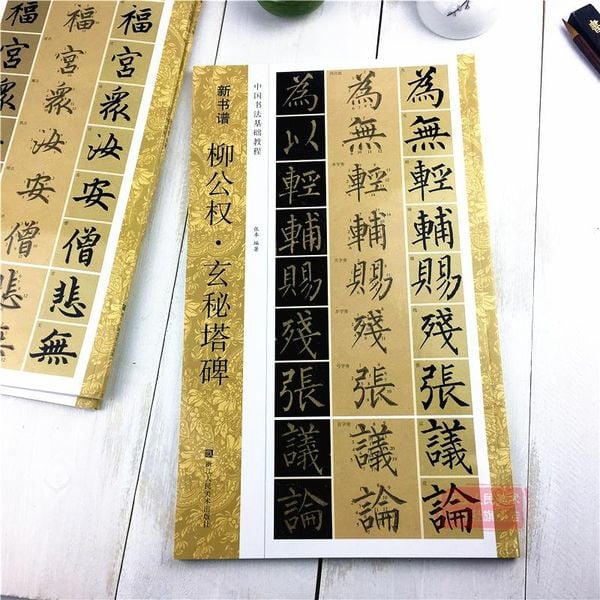 福 福
宮 宮
衆 衆
汝 汝
安 安
僧 僧
悲 悲
無
新书谱
柳公权·玄秘塔碑
中国书法基础教程
编著
浙江人民美术出版社
為 為 為
以 無 無
輕 輕 輕
輔 輔 輔
賜 賜 賜
殘 殘 殘
張 張 張
議 議 議
論 論 論
民美术
旗舰店